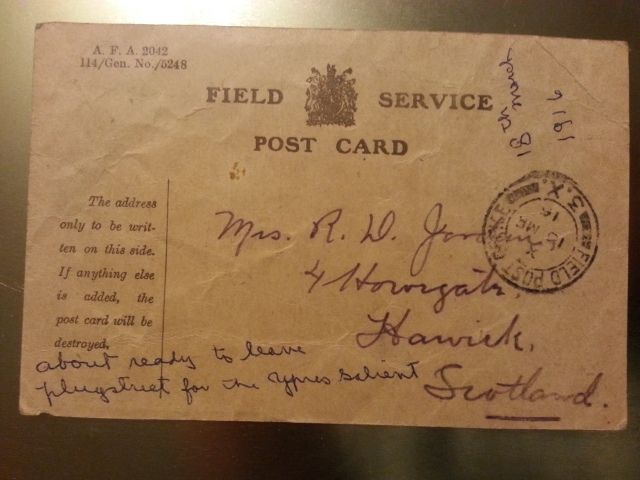 A. F. A. 2042
114/Gen. No./5248
FIELD SERVICE
POST CARD
18th March
1916
The address
only to be writ-
ten on this side.
If anything else
is added, the
post card will be
destroyed.
Mrs. R. D.
4 Howegate
Hawick,
Scotland.
FIELD POST OFFICE
3.X.
MR
16
about ready to leave
plugstreet for the Ypres Salient